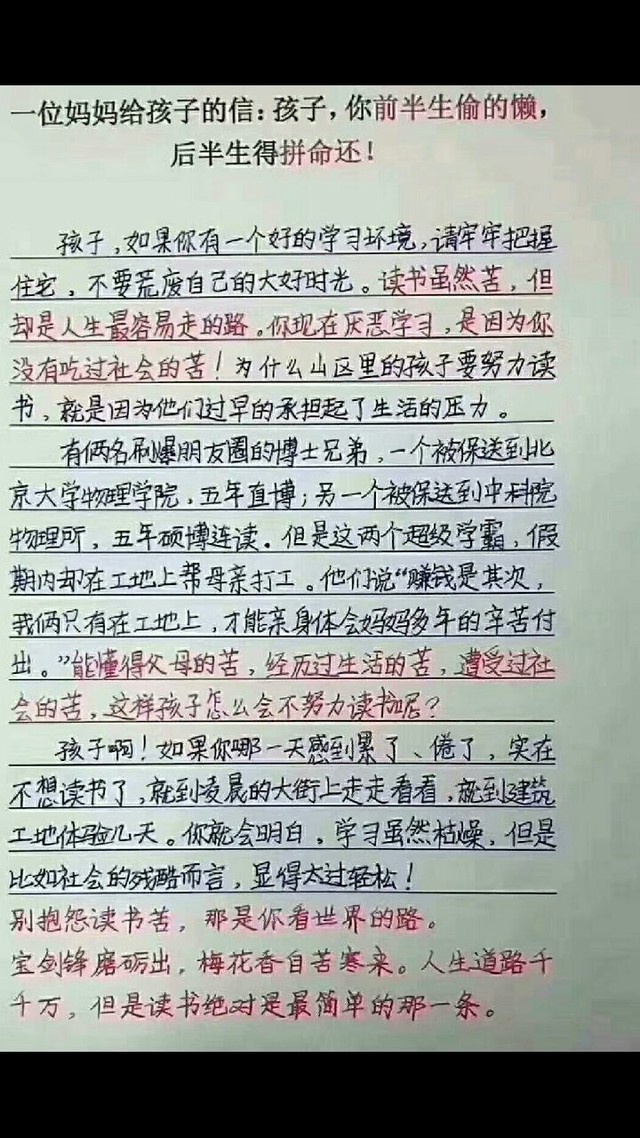 一位妈妈给孩子的信：孩子，你前半生偷的懒，
后半生得拼命还！
孩子，如果你有一个好的学习环境，请牢牢把握
住它，不要荒废自己的大好时光。读书虽然苦，但
却是人生最容易走的路。你现在厌恶学习，是因为你
没有吃过社会的苦！为什么山区里的孩子要努力读
书，就是因为他们过早的承担起了生活的压力。
有俩名刷爆朋友圈的博士兄弟，一个被保送到北
京大学物理学院，五年直博；另一个被保送到中科院
物理所，五年硕博连读。但是这两个超级学霸，假
期内却在工地上帮母亲打工。他们说“赚钱是其次，
我俩只有在工地上，才能亲身体会妈妈多年的辛苦付
出。”能懂得父母的苦，经历过生活的苦，遭受过社
会的苦，这样孩子怎么会不努力读书呢？
孩子啊！如果你哪一天感到累了、倦了，实在
不想读书了，就到凌晨的大街上走走看看，就到建筑
工地体验几天。你就会明白，学习虽然枯燥，但是
比如社会的残酷而言，显得太过轻松！
别抱怨读书苦，那是你看世界的路。
宝剑锋磨砺出，梅花香自苦寒来。人生道路千
千万，但是读书绝对是最简单的那一条。